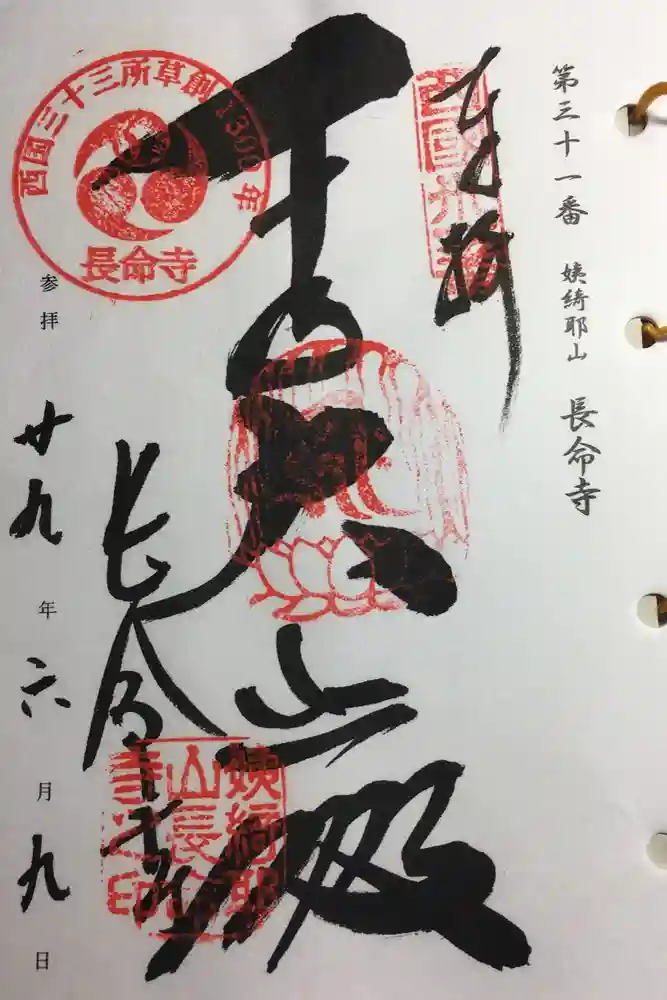 第三十一番 姨綺耶山 長命寺
奉拝
西国三十三所草創1300年
長命寺
千手大悲殿
長命寺
姨綺耶
山長命
寺之印
参拝 廿九年六月九日